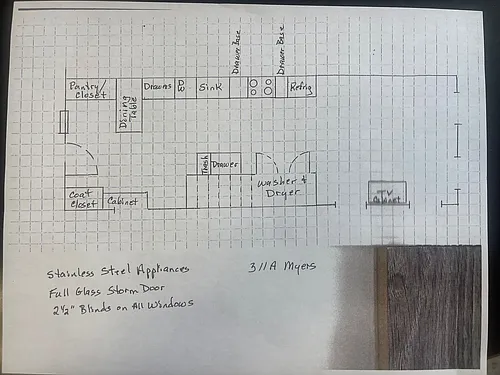 Drawer Base
Drawer Base
Pantry/
Closet
Drawers
DW
Sink
Refrig
Dining
Table
Trash
Drawer
Washer +
Dryer
Coat
Closet
Cabinet
TV
Cabinet
Stainless Steel Appliances
311A Myers
Full Glass Storm Door
2½" Blinds on All Windows